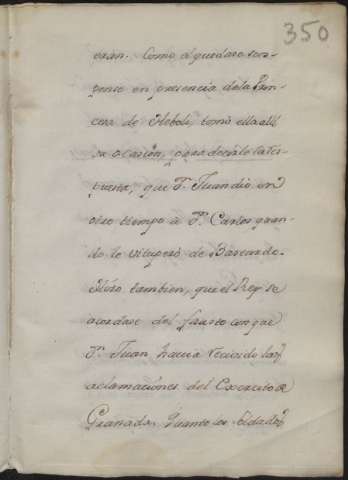 350
eran. Como él quedase sus-
penso en presencia de la Prin-
cesa de Heboli, tomó ella allí
su ocasión, para decirle la res-
puesta, que Dn. Juan dio en
otro tiempo à Dn. Carlos quan-
do le vituperó de Bastardo.
Hizo tambien, que el Rey se
acordase del fausto con que
Dn. Juan havia recivido las
aclamaciones del Exercito de
Granada. Quanto los soldados